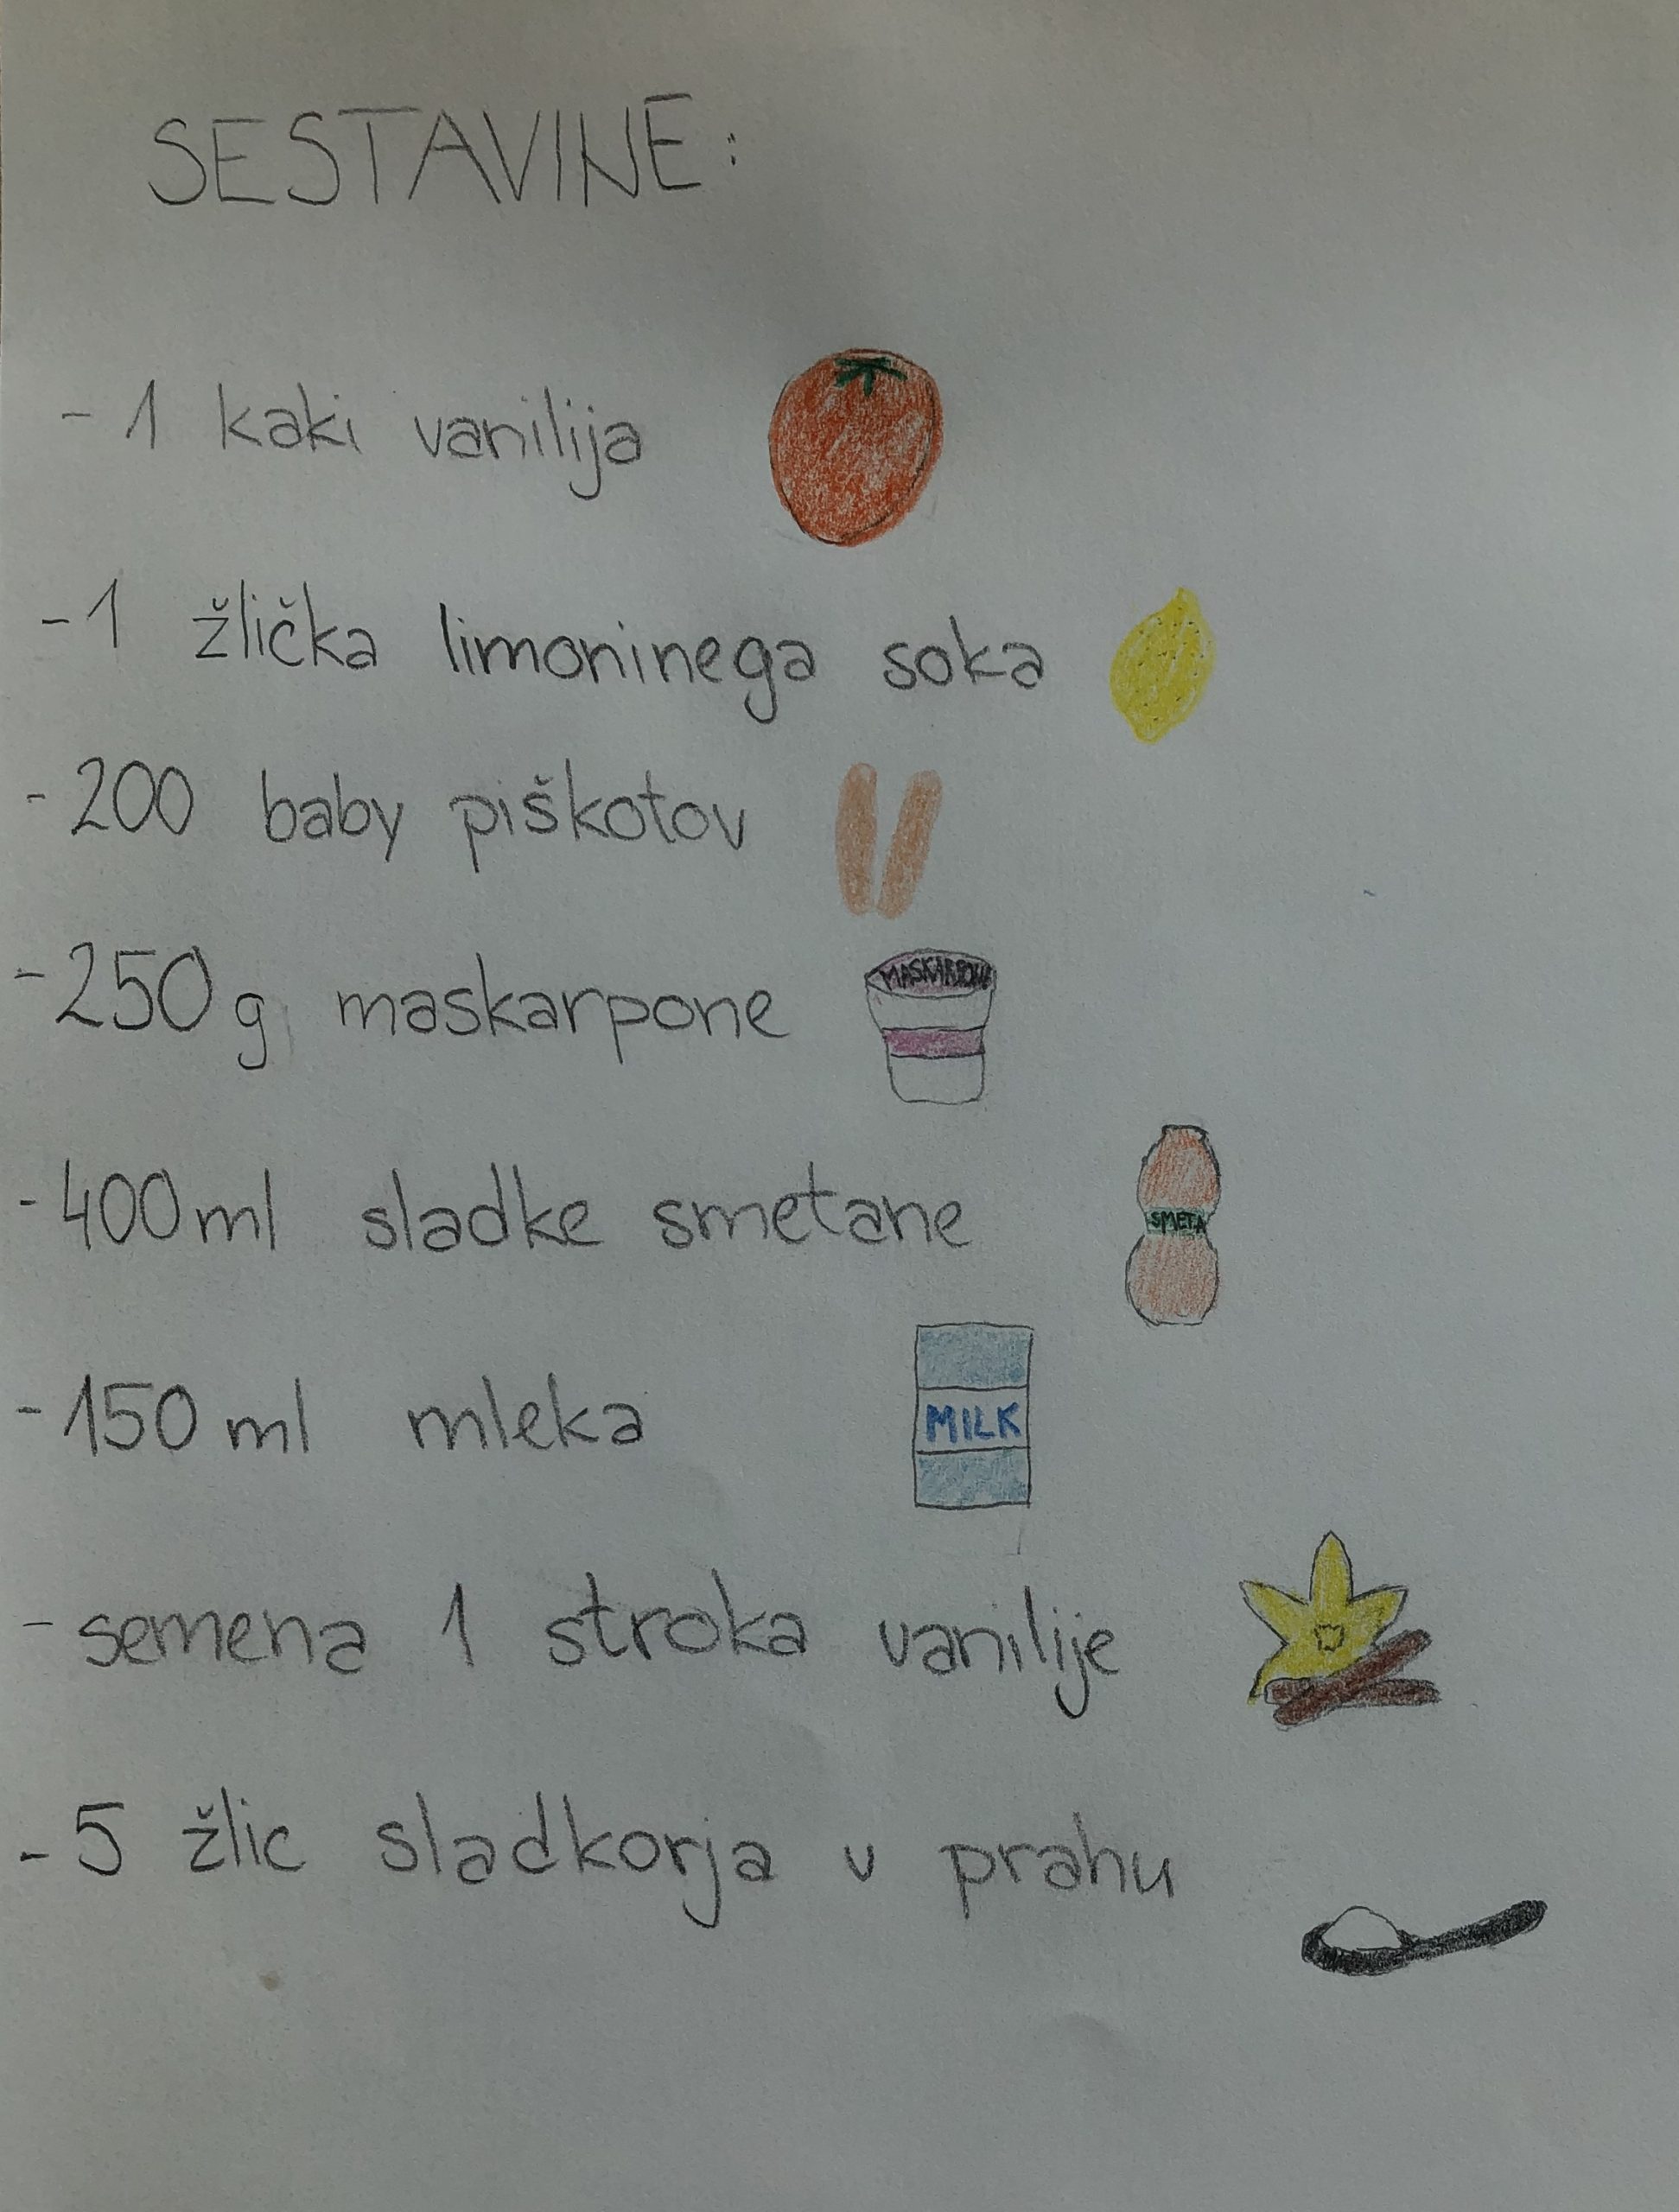 SESTAVINE:
- 1 kaki vanilija
- 1 žlička limoninega soka
- 200 baby piškotov
- 250 g maskarpone
MASKARPONE
- 400 ml sladke smetane
SMETA
- 150 ml mleka
MILK
- semena 1 stroka vanilije
- 5 žlic sladkorja v prahu